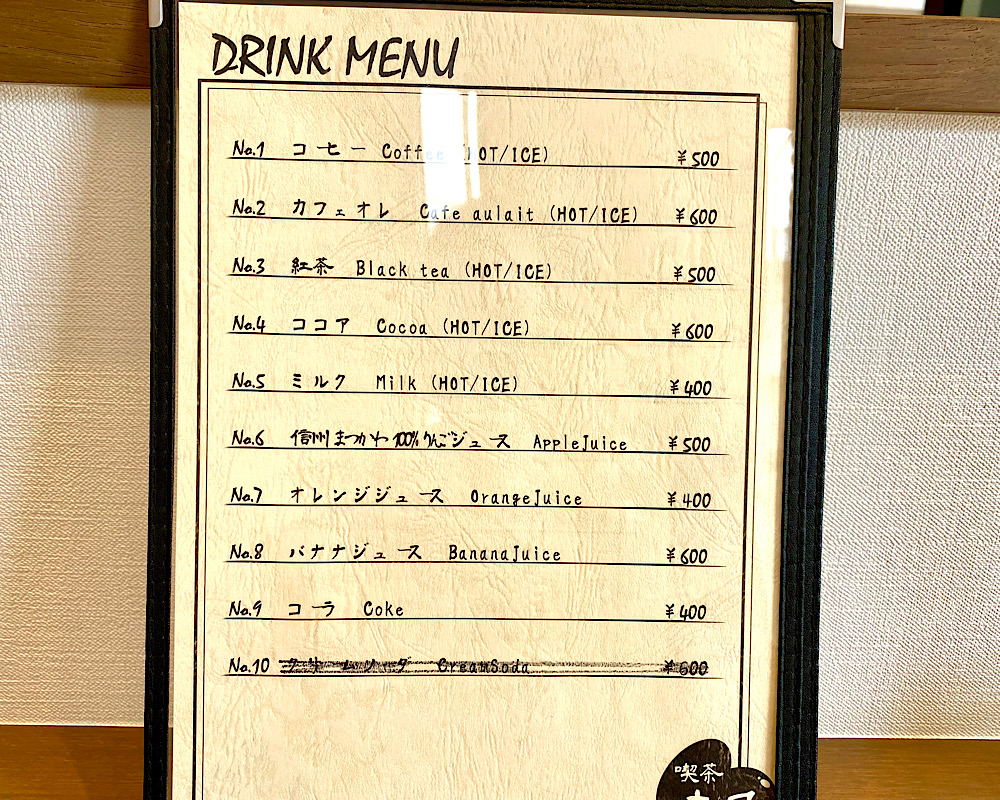 DRINK MENU
No.1 コヒー Coffee (HOT/ICE) ¥500
No.2 カフェオレ Cafe aulait (HOT/ICE) ¥600
No.3 紅茶 Black tea (HOT/ICE) ¥500
No.4 ココア Cocoa (HOT/ICE) ¥600
No.5 ミルク Milk (HOT/ICE) ¥400
No.6 信州まつかわ100%りんごジュース AppleJuice ¥500
No.7 オレンジジュース OrangeJuice ¥400
No.8 バナナジュース BananaJuice ¥600
No.9 コーラ Coke ¥400
No.10 CreamSoda ¥600
喫茶